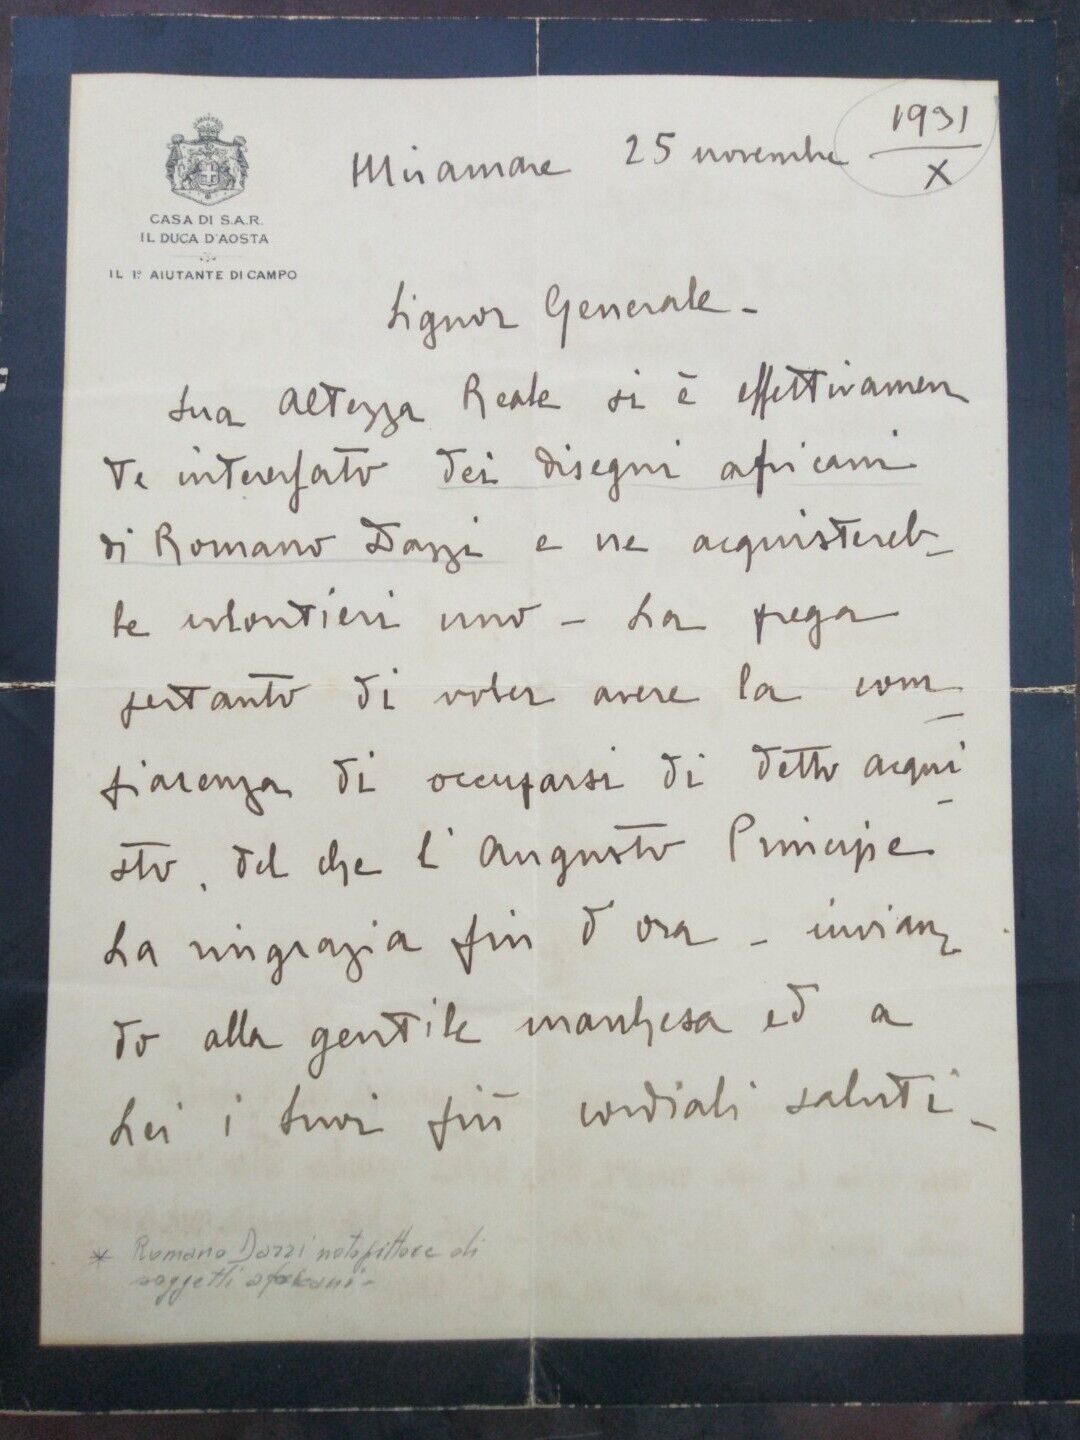 CASA DI S.A.R.
IL DUCA D'AOSTA
IL 1º AIUTANTE DI CAMPO
Miramare 25 novembre 1931
X
Signor Generale -
Sua Altezza Reale si è effettivamen
te interessato dei disegni africani
di Romano Dazzi e ne acquistereb-
be volentieri uno - La prega
pertanto di voler avere la com-
piacenza di occuparsi di detto acqui-
sto, del che l'Augusto Principe
La ringrazia fin d'ora - invian
do alla gentile marchesa ed a
Lei i Suoi più cordiali saluti -
* Romano Dazzi noto pittore di
soggetti africani -